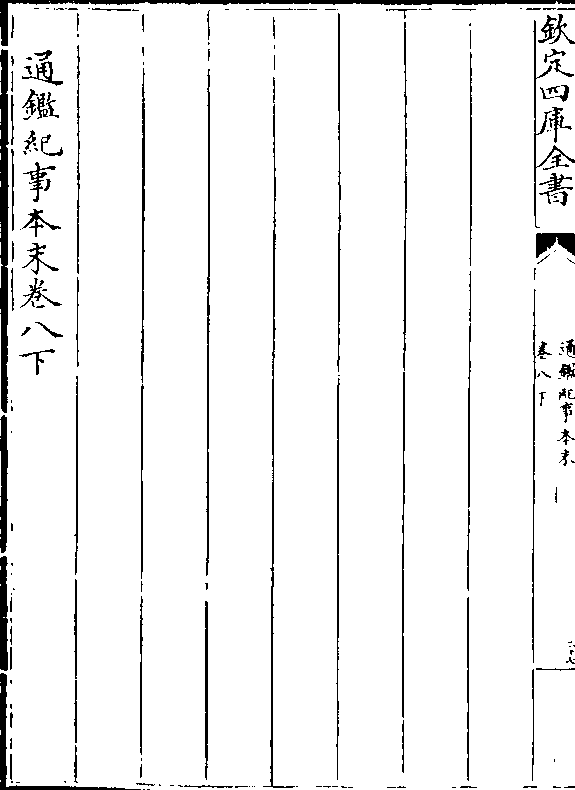 欽定四庫全書
通鑑紀事本末
卷八下
通鑑紀事本末卷八下